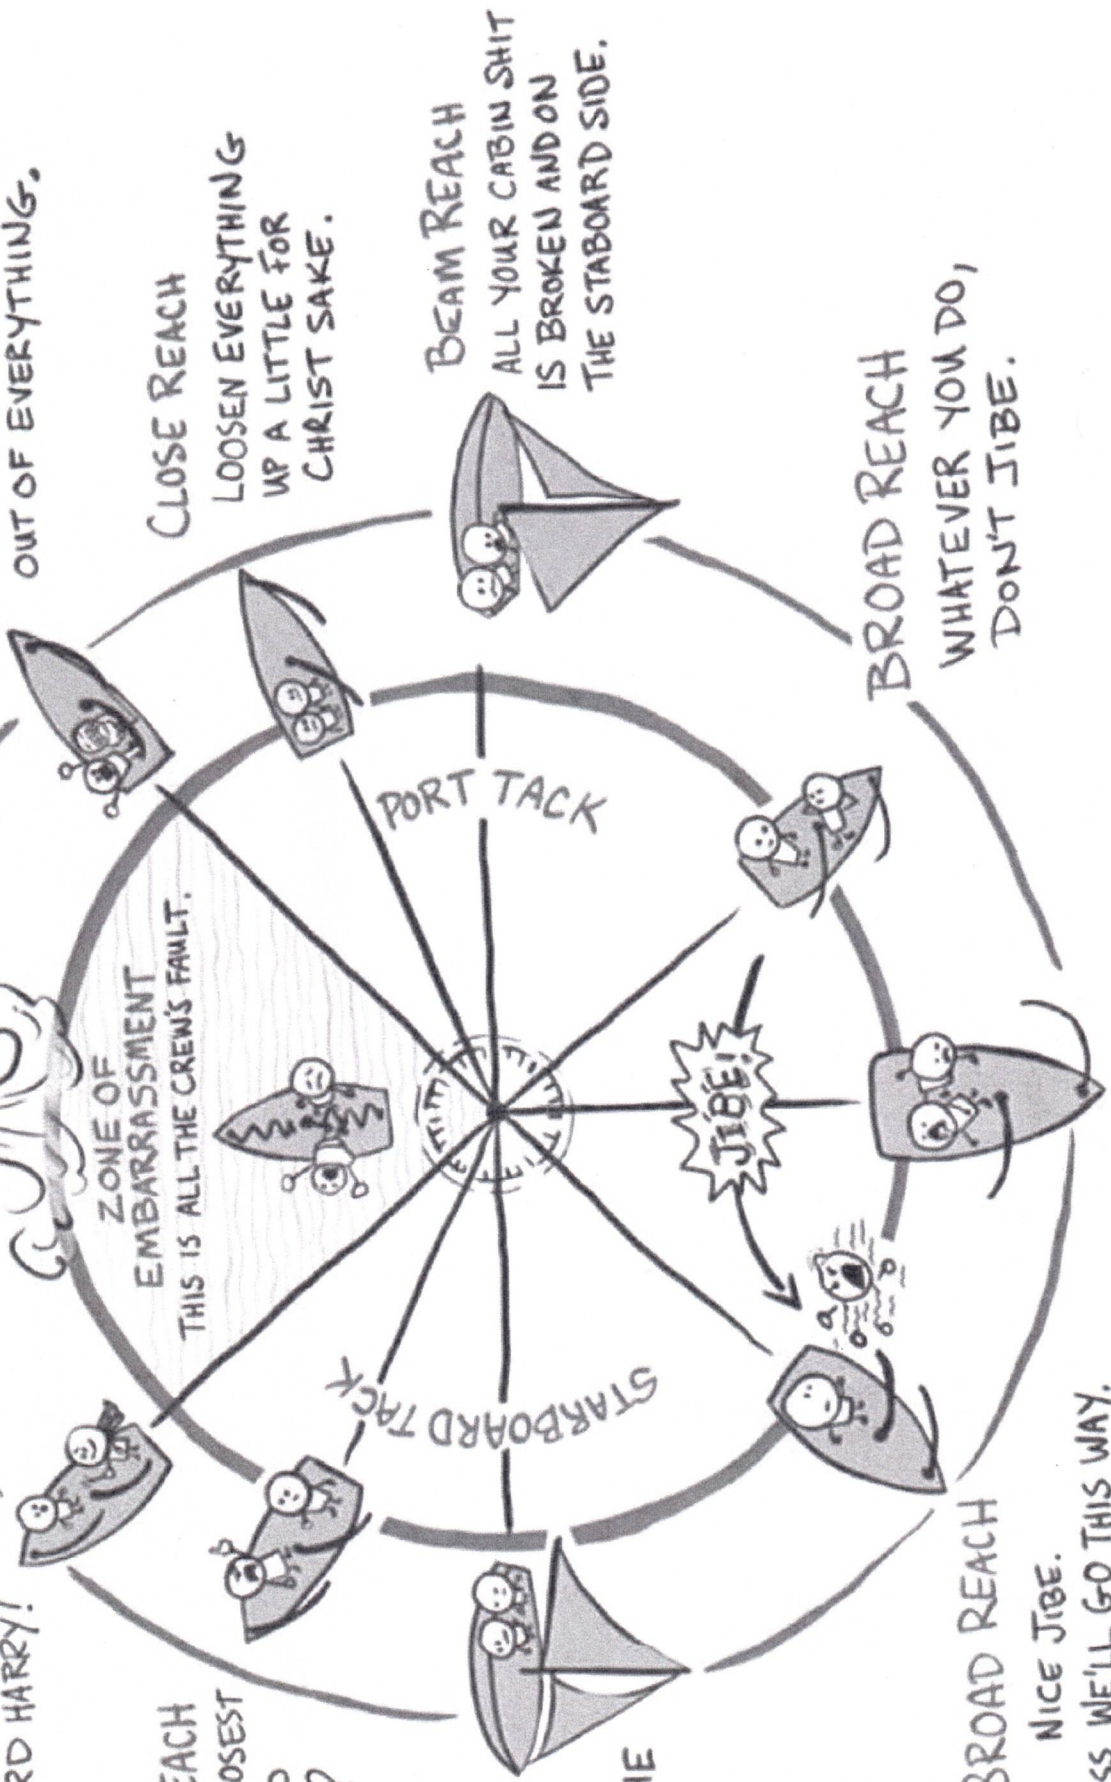 OUT OF EVERYTHING.
CLOSE REACH
LOOSEN EVERYTHING
UP A LITTLE FOR
CHRIST SAKE.
BEAM REACH
ALL YOUR CABIN SHIT
IS BROKEN AND ON
THE STABOARD SIDE.
BROAD REACH
WHATEVER YOU DO,
DON'T JIBE.
ZONE OF
EMBARRASSMENT
THIS IS ALL THE CREW'S FAULT.
PORT TACK
STARBOARD TACK
JIBE!
RD HARRY!
EACH
OSEST
BROAD REACH
NICE JIBE.
SS WE'LL GO THIS WAY.